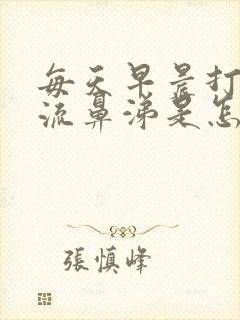 每天早晨打
流鼻涕是怎
張慎峰